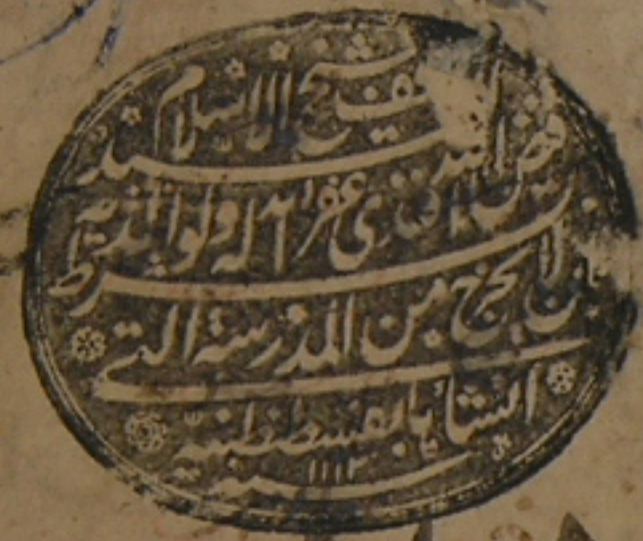 وقف شيخ الاسلام السيد
فيض الله افندي غفر الله له ولوالديه بشرط
ان لا يخرج من المدرسة التي
انشأها بقسطنطنية
سنة ١١١٣